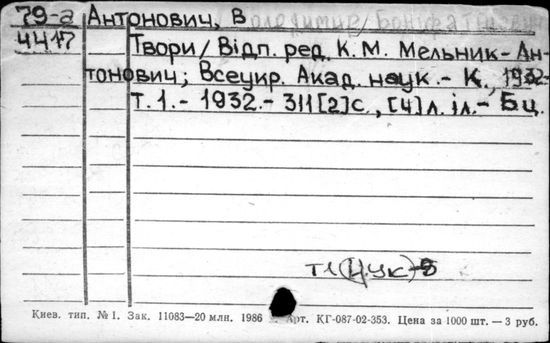 79-а Антонович, В олодимир/ Боніфатійович
4417 Твори/ Відп. ред. К. М. Мельник-Ан-
тонович; Всеукр. Акад. наук.- К., 1932-
Т. 1.- 1932.- 311[2]с., [4]л. іл.- Бц.
т1(Ц.УК)-5
Киев. тип. № 1. Зак. 11083—20 млн. 1986 Арт. КГ-087-02-353. Цена за 1000 шт. — 3 руб.